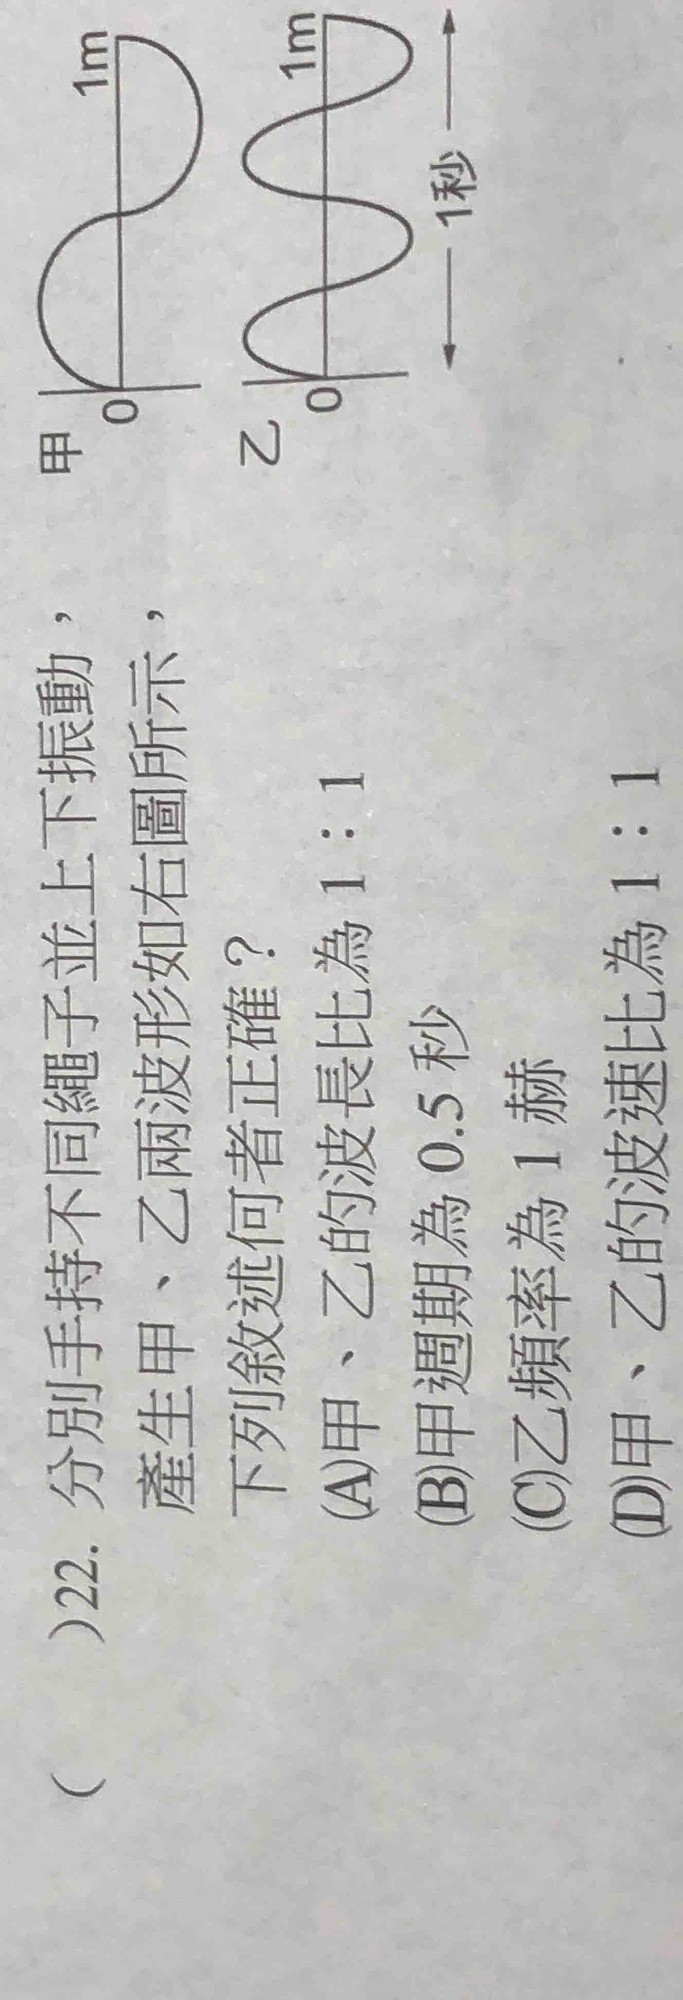 ( )22. 分別手持不同繩子並上下振動，
產生甲、乙兩波形如右圖所示，
下列敘述何者正確？
(A)甲、乙的波長比為 1：1
(B)甲週期為 0.5 秒
(C)乙頻率為 1 赫
(D)甲、乙的波速比為 1：1
甲
0
1m
乙
0
1m
1秒